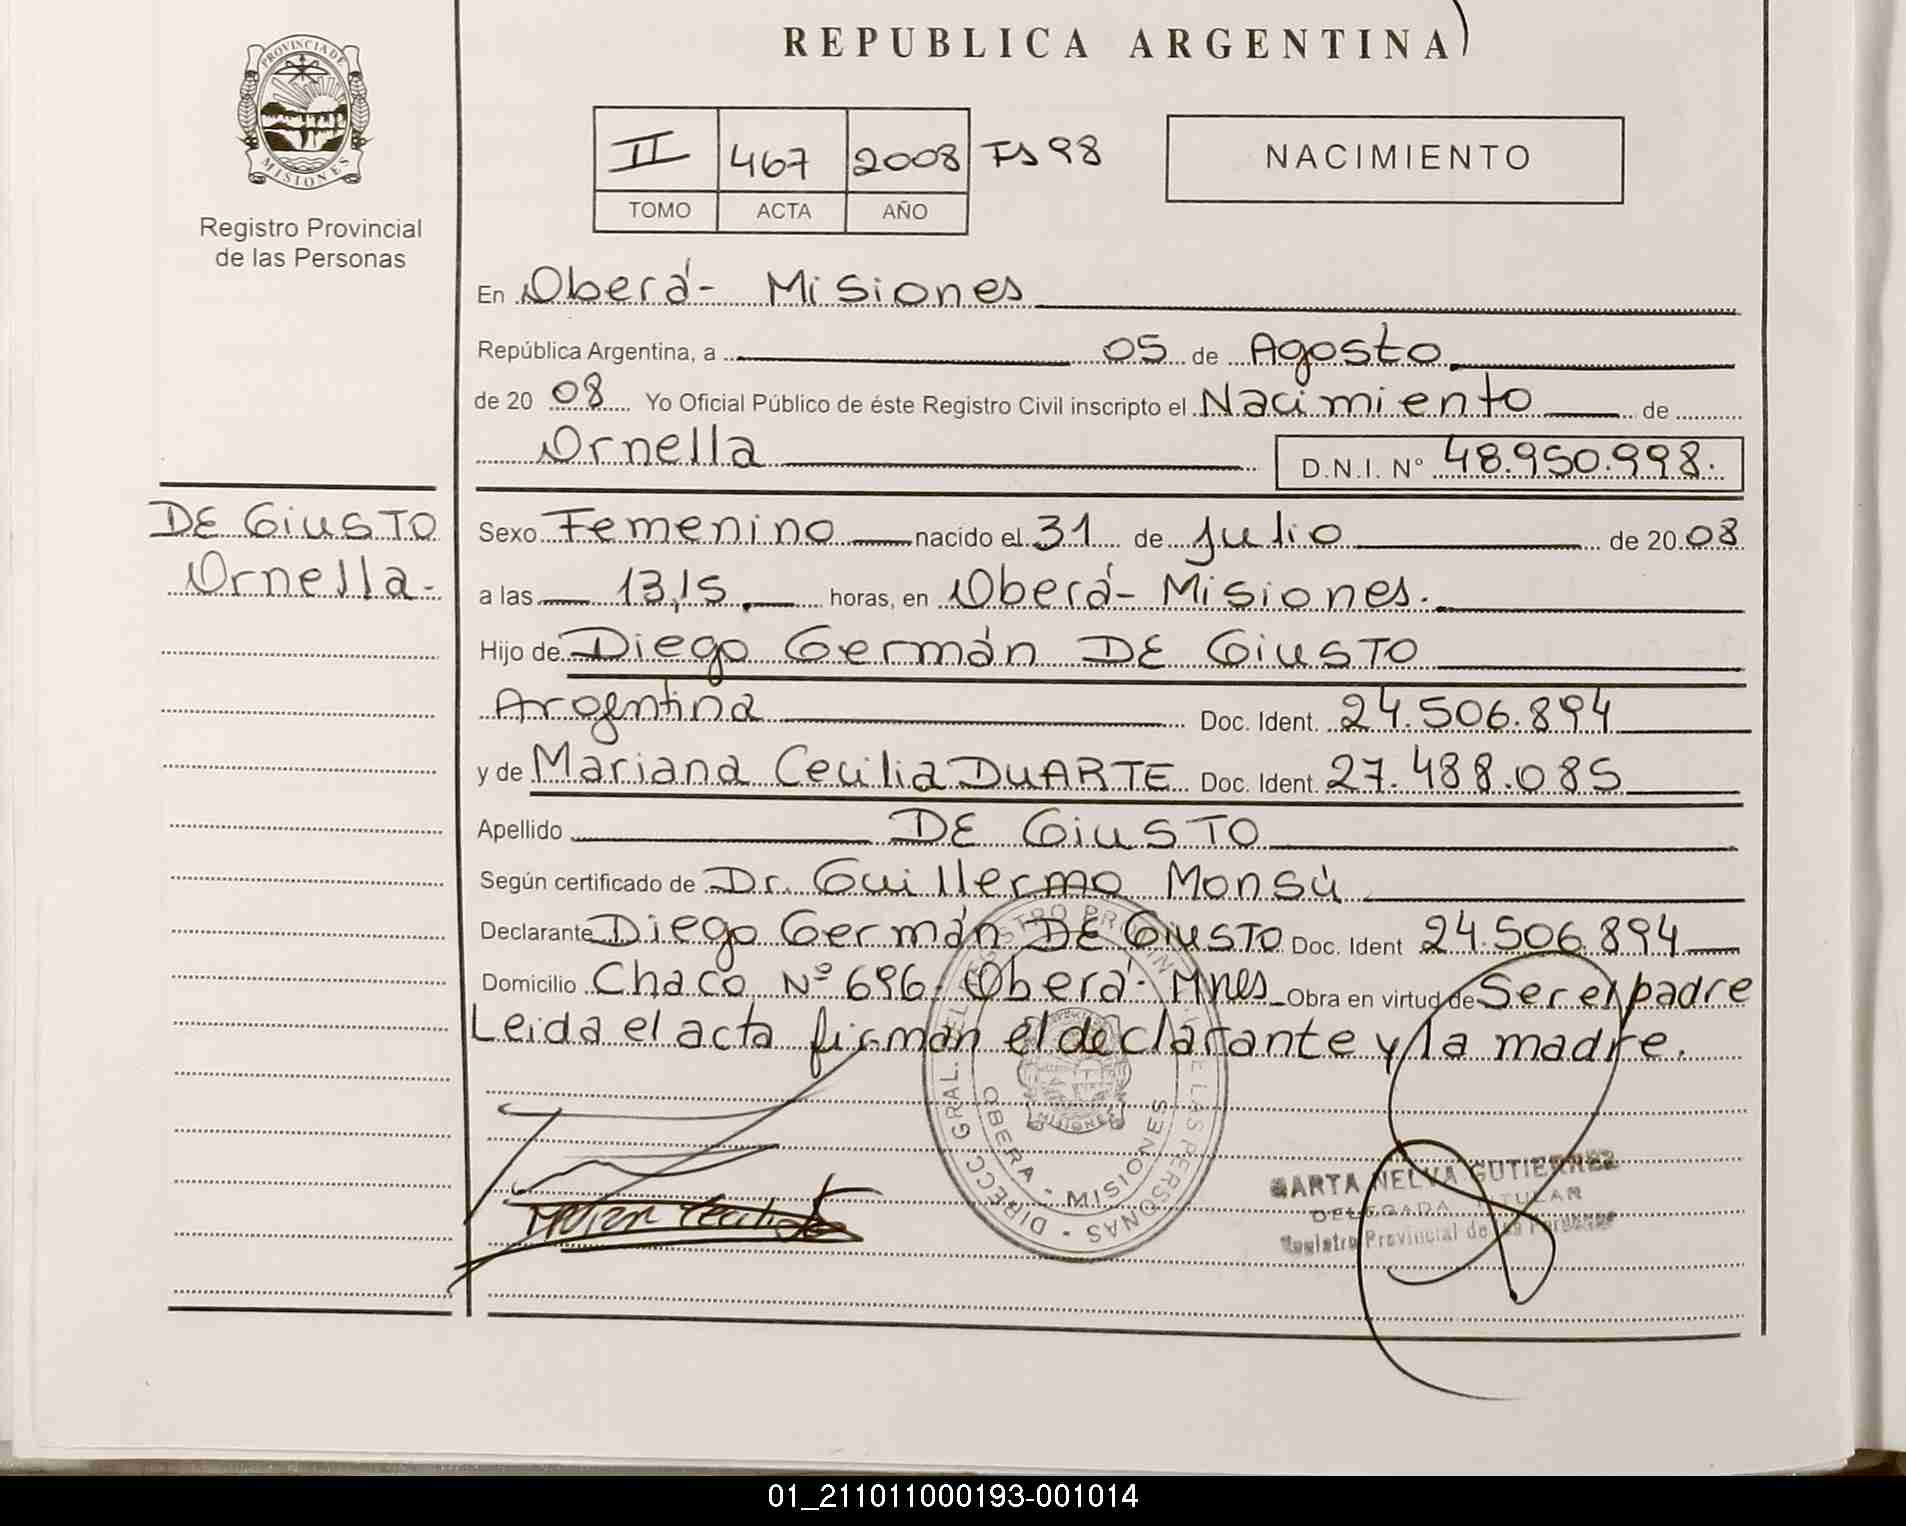 REPUBLICA ARGENTINA
PROVINCIA DE
MISIONES
Registro Provincial
de las Personas
II 467 2008 Fs 98
TOMO ACTA AÑO
NACIMIENTO
En Oberá- Misiones
República Argentina, a 05 de Agosto
de 20 08 Yo Oficial Público de éste Registro Civil inscripto el Nacimiento de
Ornella D.N.I. N° 48.950.998.
DE GiUSTO
Ornella.
Sexo Femenino nacido el 31 de Julio de 20 08
a las 13,15 horas, en Oberá- Misiones.
Hijo de Diego Germán DE GiUSTO
Argentina Doc. Ident. 24.506.894
y de Mariana Cecilia DUARTE Doc. Ident. 27.488.085
Apellido DE GiUSTO
Según certificado de Dr. Guillermo Monsú
Declarante Diego Germán DE GiUSTO Doc. Ident 24.506.894
Domicilio Chaco Nº 696. Oberá- Mnes Obra en virtud de Ser el padre
Leida el acta firman el declarante y la madre.
DIRECC GRAL. DEL REGISTRO PROVINCIAL DE LAS PERSONAS
OBERA - MISIONES
MISIONES
MARTA NELVA GUTIERREZ
DELEGADA TITULAR
Registro Provincial de las Personas
01_211011000193-001014